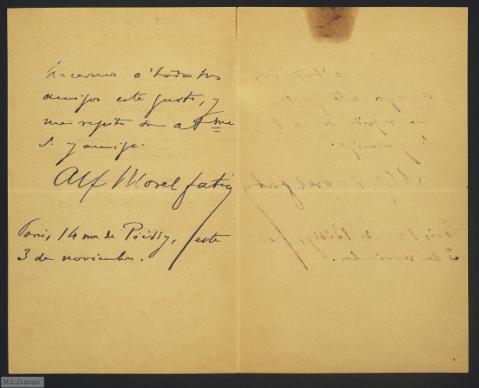 hacernos á todos sus
amigos este gusto, y
me repito su attme
S. y amigo.
Alf Morel fatio
Paris, 14 rue de Poissy, este
3 de noviembre.
M.C.D. 2022